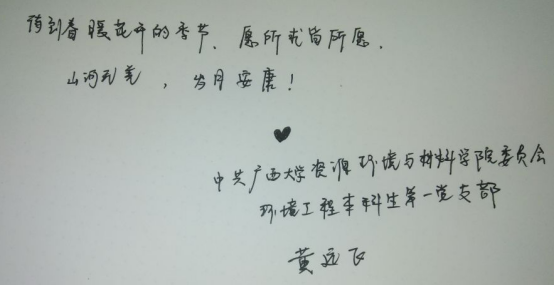 待到春暖花开的季节、愿所求皆所愿.
山河无恙，岁月安康！
中共广西大学资源环境与材料学院委员会
环境工程本科生第一党支部
黄远飞